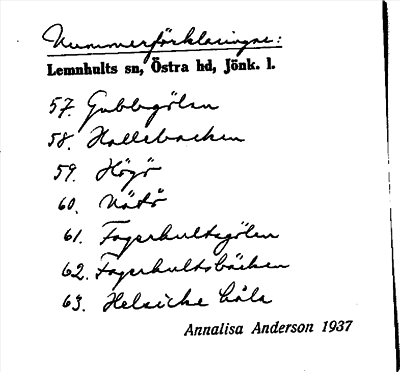 Nummerförklaringar:
Lemnhults sn, Östra hd, Jönk. l.
57. Gubbgölen
58. Hallebacken
59. Högö
60. Nätö
61. Fagerhultsgölen
62. Fagerhultsbäcken
63. håla
Annalisa Anderson 1937